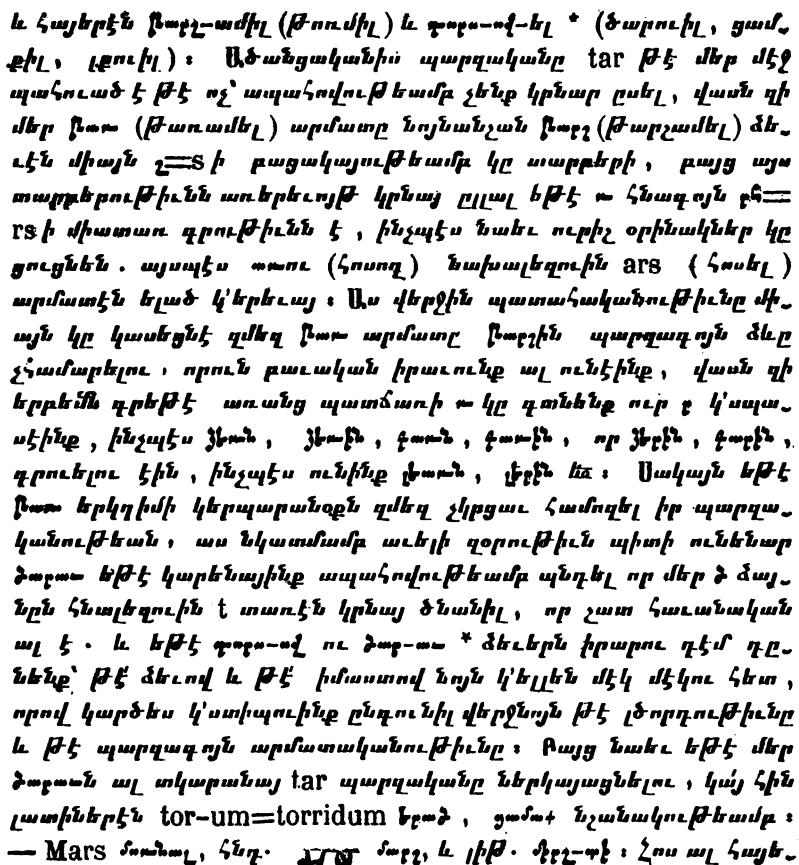 և Հայերէն թարշ-ամիլ (թոռմիլ) և տարա-ով-ել * (ծարուիլ, ցամ-
քիլ, լքուիլ)։ Ածանցականիս պարզականը tar թէ մեր մէջ
պահուած է թէ ոչ՝ ապահովութեամբ չենք կրնար ըսել, վասն զի
մեր թառ (թառամել) արմատը նոյնանշան թարշ (թարշամել) ձե-
ւէն միայն շ=s ի բացակայութեամբ կը տարբերի, բայց այս
տարբերութիւնն առերեւոյթ կրնայ ըլլալ եթէ ռ հնագոյն րս=
rs ի միատառ գրութիւնն է, ինչպէս նաեւ ուրիշ օրինակներ կը
ցուցնեն. այսպէս առու (հոսող) նախալեզուին ars (հոսել)
արմատէն ելած կ'երեւայ։ Այս վերջին պատահականութիւնը մի-
այն կը կասեցնէ զմեզ թառ արմատը թարշին պարզագոյն ձևը
չհամարելու, որուն բաւական իրաւունք ալ ունէինք, վասն զի
երբեմն գրեթէ առանց պատճառի ռ կը գտնենք ուր ր կ'սպա-
սէինք, ինչպէս ձեռն, ձեռին, գառն, գառին, որ ձերին, գարին,
գրուելու էին, ինչպէս ունինք լեառն, լերին ևն։ Սակայն եթէ
թառ երկդիմի կերպարանօքն զմեզ չկրցաւ համոզել իր պարզա-
կանութեան, աս նկատմամբ աւելի զօրութիւն պիտի ունենար
ծարաւ եթէ կարենայինք ապահովութեամբ պնդել որ մեր ծ ձայ-
նըն հնալեզուին t տառէն կրնայ ծնանիլ, որ շատ հաւանական
ալ է. և եթէ տարա-ով ու ծար-աւ * ձեւերն իրարու դէմ դը-
նենք՝ թէ՛ ձեւով և թէ՛ իմաստով նոյն կ'ելլեն մէկ մէկու հետ,
որով կարծես կ'ստիպուինք ընդունիլ վերջնոյն թէ լծորդութիւնը
և թէ պարզագոյն արմատականութիւնը։ Բայց նաեւ եթէ մեր
ծարաւն ալ տկարանայ tar պարզականը ներկայացնելու, կա՛յ հին
լատիներէն tor-um=torridum երաշտ, ցամաք նշանակութեամբ։
— Mars մոռանալ, հնդ. մարշ, և լիթ. միրշ-տի։ Հոս ալ հայե-